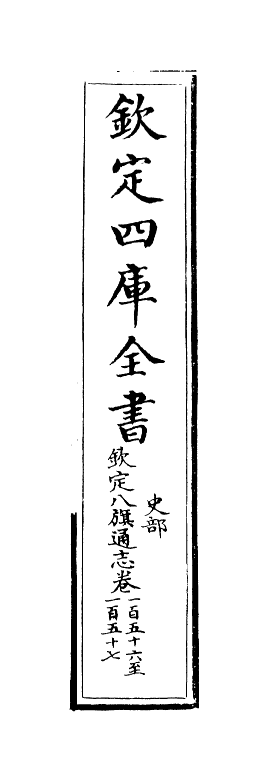 欽定四庫全書
史部
欽定八旗通志卷
一百五十六至
一百五十七